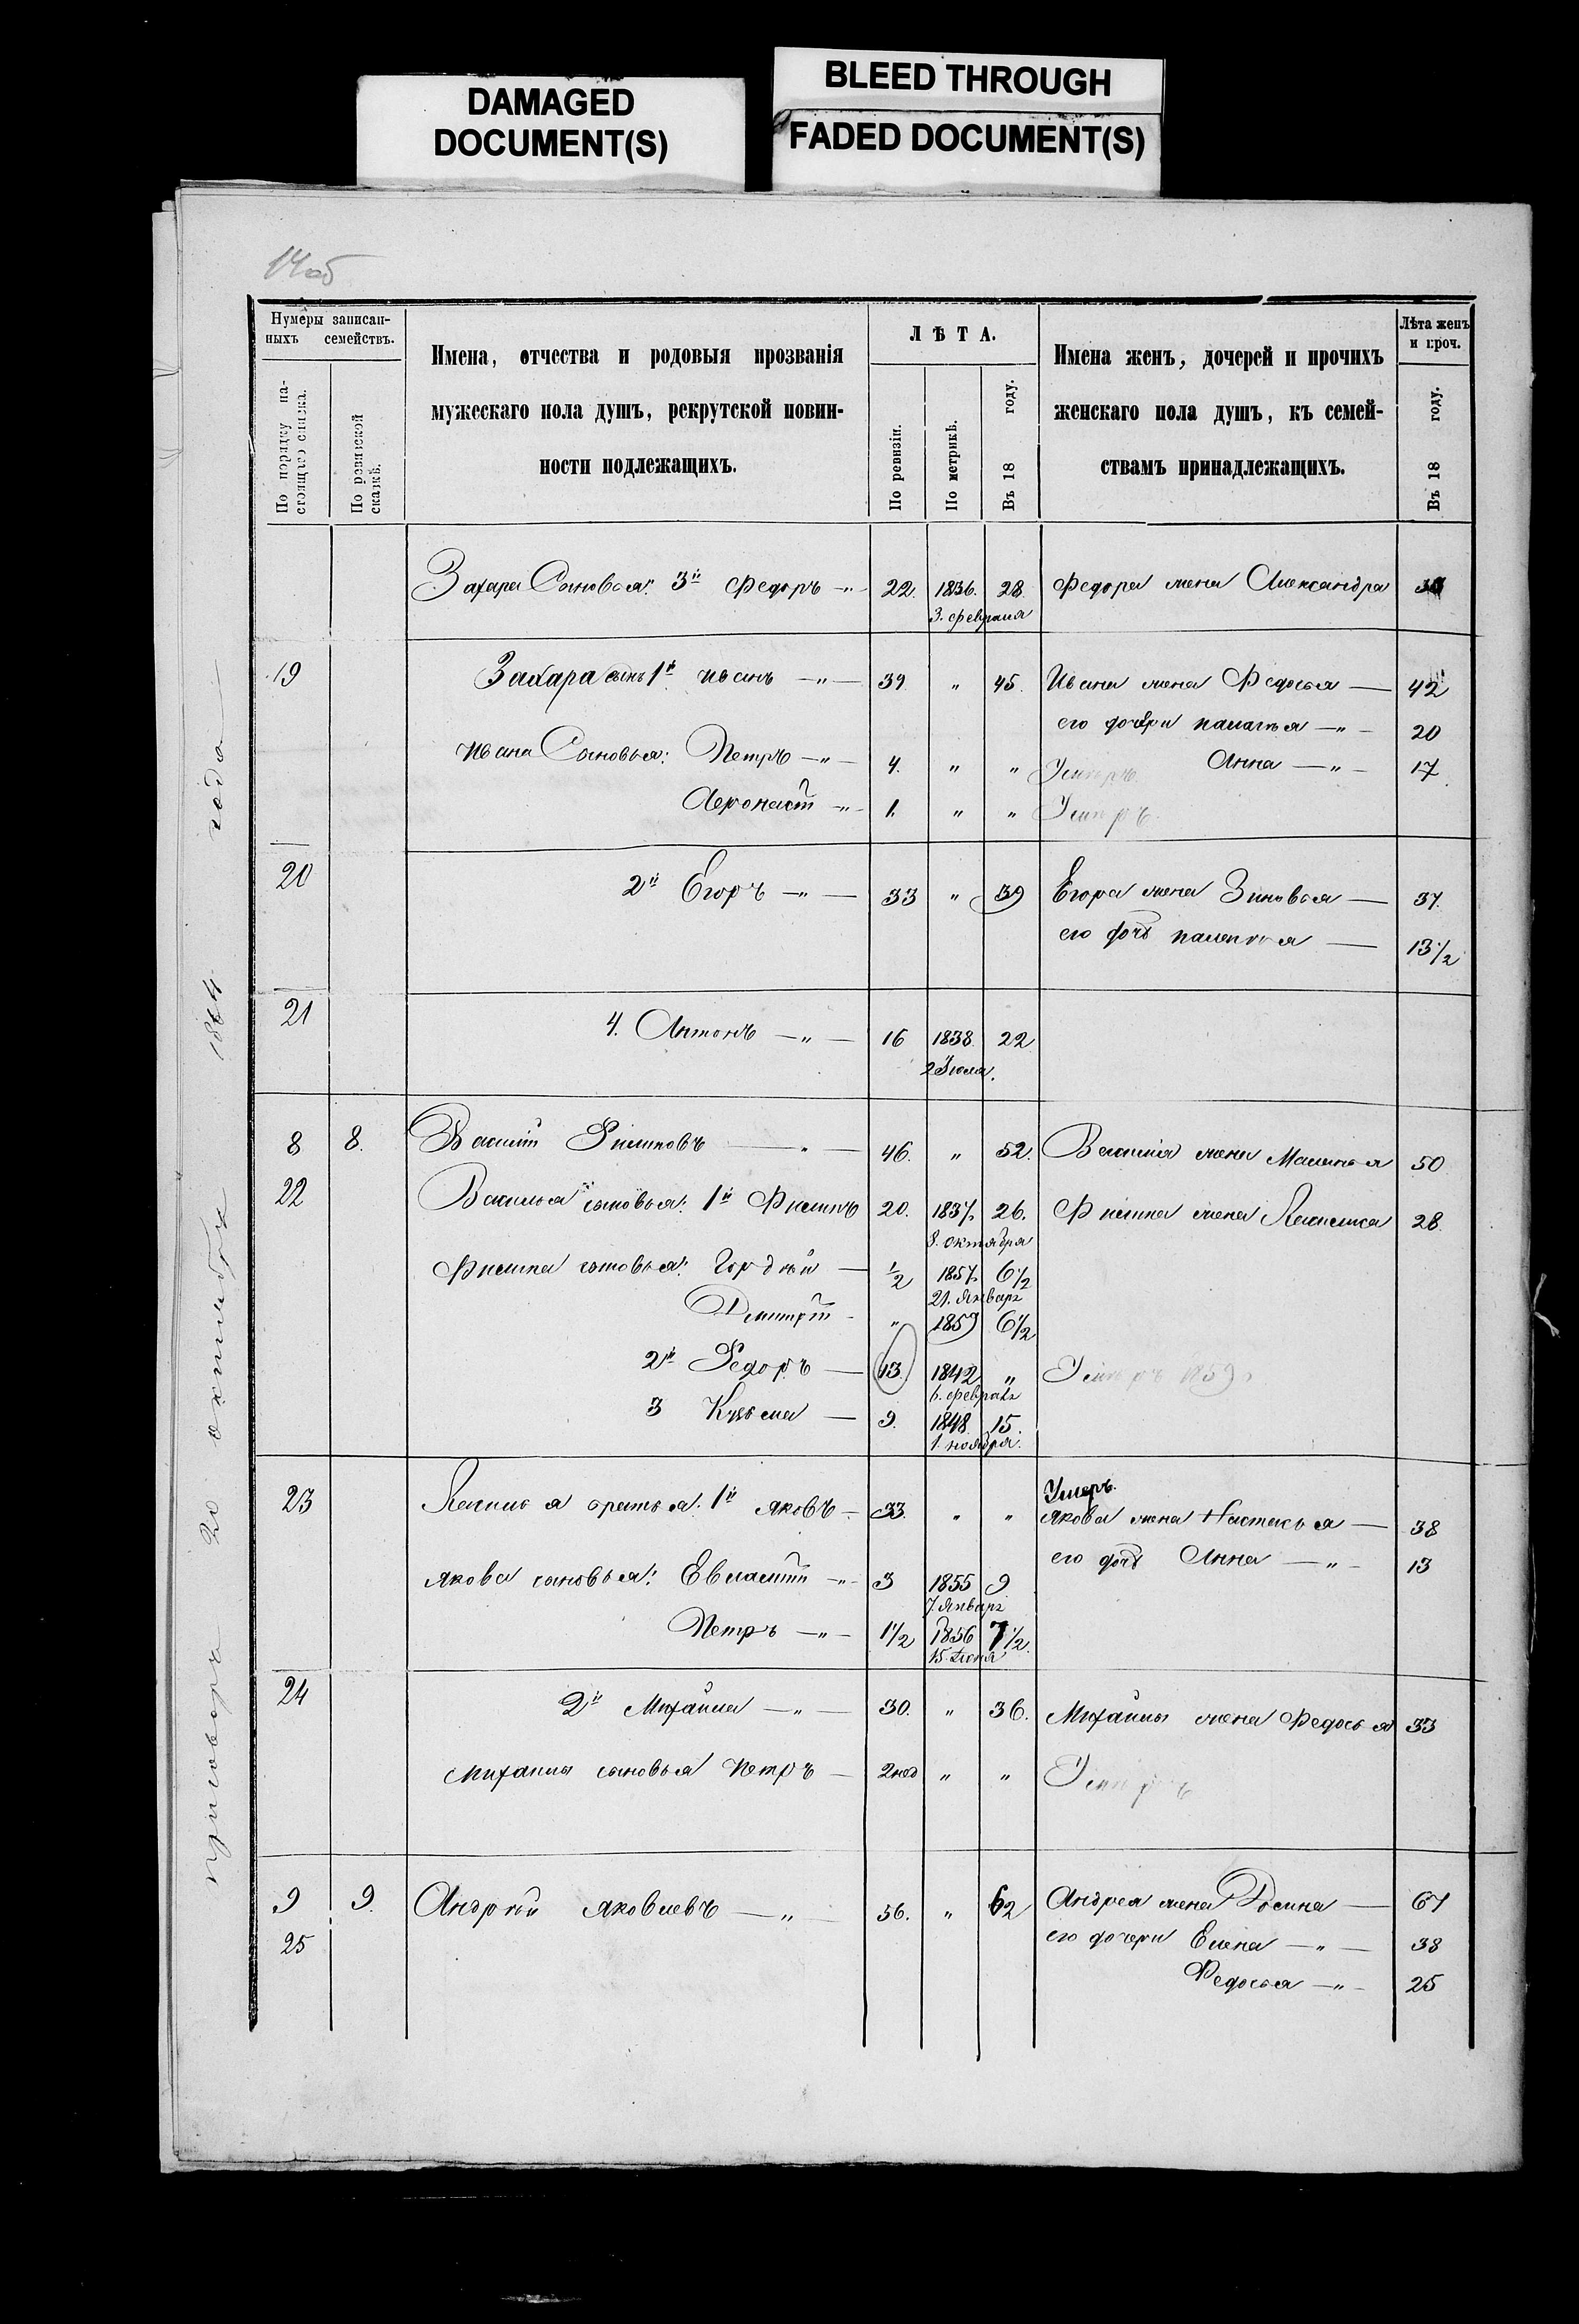 DAMAGED
DOCUMENT(S)
BLEED THROUGH
FADED DOCUMENT(S)
14об
Нумеры записан-
ныхъ семействъ.
По порядку на-
стоящаго списка.
По ревизской
сказкѣ.
Имена, отчества и родовыя прозванія
мужескаго пола душъ, рекрутской повин-
ности подлежащихъ.
ЛѢТА.
По ревизіи.
По метрикѣ.
Въ 18 году.
Имена женъ, дочерей и прочихъ
женскаго пола душъ, къ семей-
ствамъ принадлежащихъ.
Лѣта женъ
и проч.
Въ 18 году.
Захара Сыновья: 3й Федоръ —"— 22. 1836. 28. Федора жена Александра
3. февраля
19 Захара сынъ 1й Иванъ —"— 39. " 45. Ивана жена Федосья — 42
его дочери Палагья —"— 20
Ивана Сыновья: Петръ —"— 4. " " Умеръ. Анна —"— 17.
Аеронаст —"— 1. " " Умеръ.
20 2й Егоръ —"— 33 " 39 Егора жена Зиновья — 37.
его дочь Палагья — 13 1/2
21 4. Антонъ —"— 16 1838. 22
2 Июля.
8 8. Василій Филиповъ —"— 46. " 52. Василія жена Маланья 50
22 Василья сыновья: 1й Филипъ 20. 1837. 26. Филипа жена Василиса 28.
8. октября
Филипа сыновья: Гордѣй — 1/2 1857. 6 1/2
21. Январ
Дмитрій - " 1859 6 1/2
2й Федоръ — 13. 1842 " Умеръ 1859
6. февраля
3 Кузьма — 9. 1848. 15.
1. ноября.
23 Василья братья: 1й Яковъ — 33. " " Умеръ.
Якова жена Настасья — 38
его дочь Анна —"— 13
Якова сыновья: Евлампій —"— 3 1855 9
7. Январ
Петръ —"— 1 1/2 1856 7 1/2.
15. Июня
24 2й Михайла —"— 30. " 36. Михайлы жена Федосья 33
Михайлы сыновья Петръ — 2нед " " Умеръ
9 9. Андрѣй Яковлевъ —"— 56. " 62 Андрея жена Фосина — 67
25 его дочери Елена —"— 38
Федосья —"— 25
приговоръ 20 октября 1864 года —